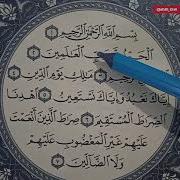 بِسْمِ اللَّهِ الرَّحْمَٰنِ الرَّحِيمِ ١
الْحَمْدُ الْعَالَمِينَ ٢
٣ مَالِكِ يَوْمِ الدِّينِ ٤
إِيَّاكَ نَعْبُدُ وَإِيَّاكَ نَسْتَعِينُ ٥ اهْدِنَا
الصِّرَاطَ الْمُسْتَقِيمَ ٦ صِرَاطَ الَّذِينَ أَنْعَمْتَ
عَلَيْهِمْ غَيْرِ الْمَغْضُوبِ عَلَيْهِمْ
وَلَا الضَّالِّينَ ٧